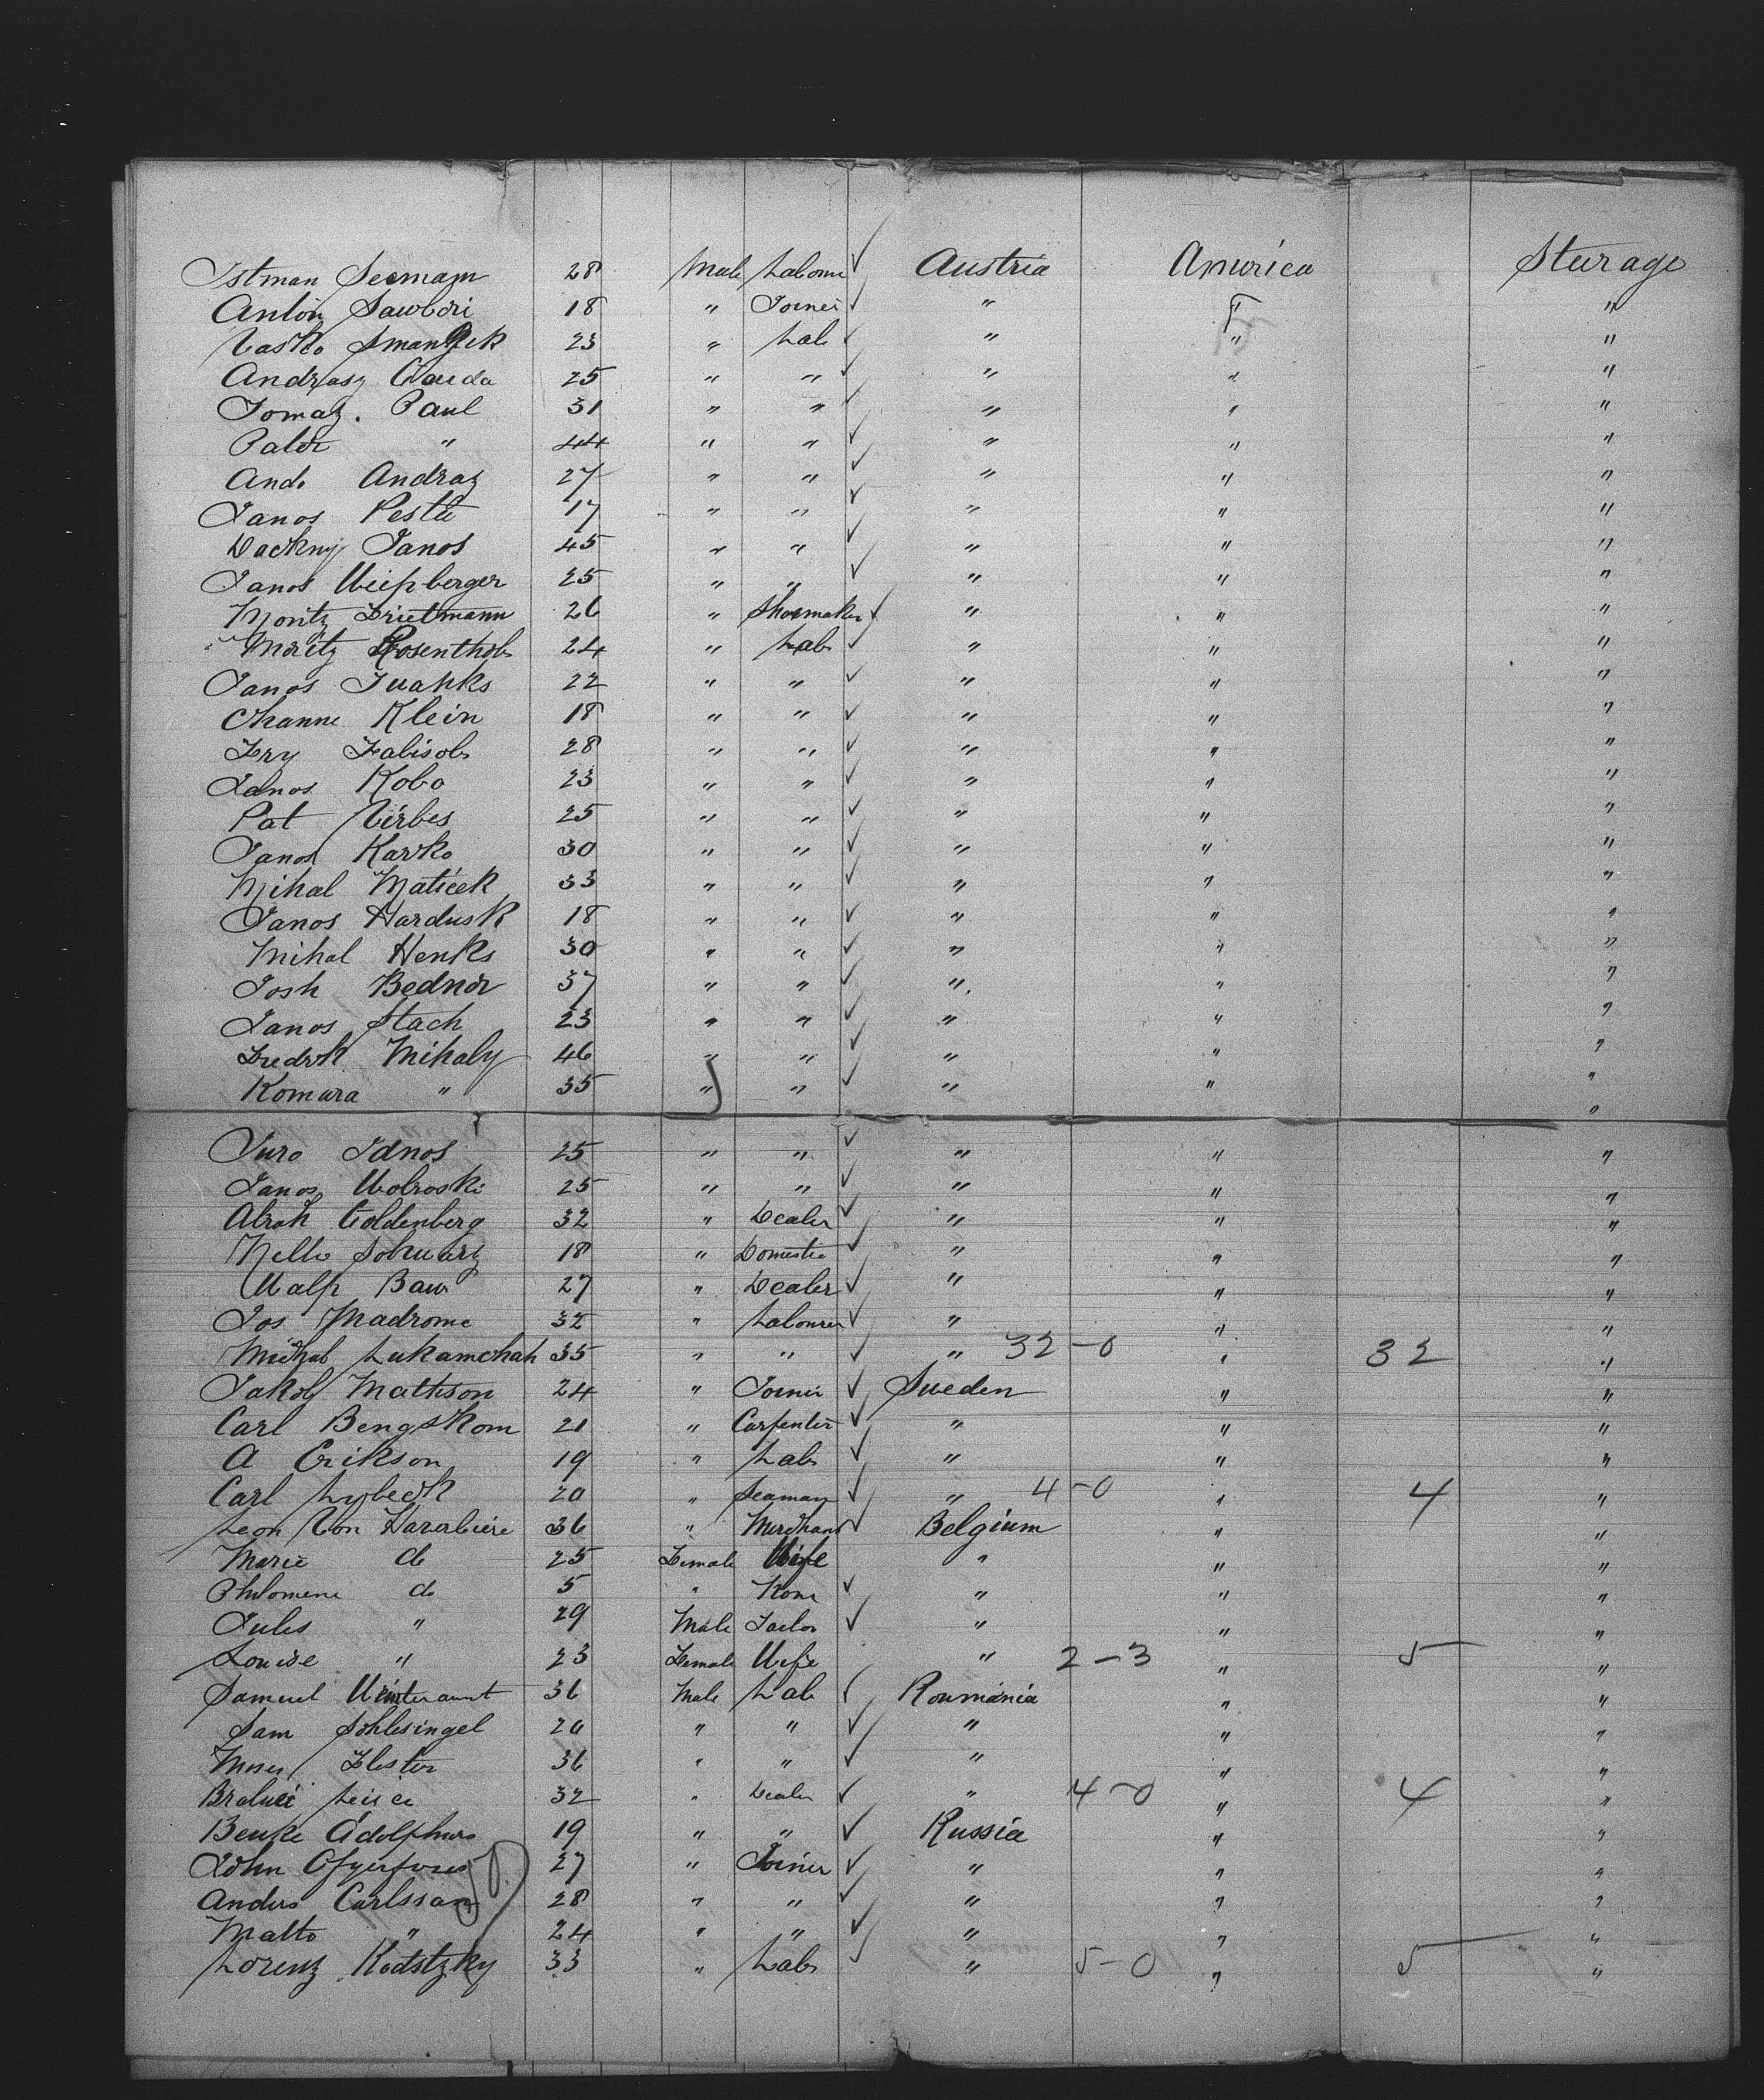 Istman Seemann 28 Male Labour ✓ Austria America Sturage
Anton Sawbori 18 " Joiner ✓ " " "
Vasko Smangek 23 " Lab ✓ " " "
Andrasz Gauda 25 " " ✓ " " "
Tomaz. Paul 31 " " ✓ " " "
Pater " 44 " " ✓ " " "
Ando Andraz 27 " " ✓ " " "
Janos Pesta 17 " " ✓ " " "
Dackny Janos 45 " " ✓ " " "
Janos Weissberger 25 " " ✓ " " "
Moritz Frietmann 26 " Shoemaker ✓ " " "
Moritz Rosenthob 24 " Lab ✓ " " "
Janos Juahks 22 " " ✓ " " "
Channe Klein 18 " " ✓ " " "
Fry Fabisob 28 " " ✓ " " "
Janos Kobo 23 " " ✓ " " "
Pat Virbes 25 " " ✓ " " "
Janos Karko 30 " " ✓ " " "
Mihal Maticek 33 " " ✓ " " "
Janos Hardusk 18 " " ✓ " " "
Mihal Henks 30 " " ✓ " " "
Josh Bednor 37 " " ✓ " " "
Janos Stach 23 " " ✓ " " "
Fredrk Mihaly 46 " " ✓ " " "
Komara " 35 " " ✓ " " "
Juro Janos 25 " " ✓ " " "
Janos Wolroski 25 " " ✓ " " "
Abrah Goldenberg 32 " Dealer ✓ " " "
Nelle Schwarz 18 " Domestic ✓ " " "
Walf Baw 27 " Dealer ✓ " " "
Jos Madrome 32 " Labourer ✓ " " "
Michal Lukamchah 35 " " ✓ " 32-0 " 32 "
Jakob Mathson 24 " Joiner ✓ Sweden " "
Carl Bengskom 21 " Carpenter ✓ " " "
A Erikson 19 " Lab ✓ " " "
Carl Lybeck 20 " Seaman ✓ " 4-0 " 4 "
Leon Von Harerbiere 36 " Merchant ✓ Belgium " "
Marie do 25 Female Wife " " "
Philomene do 5 " None ✓ " " "
Jules " 29 Male Tailor ✓ " " "
Louise " 23 Female Wife " 2-3 " 5 "
Samuel 36 Male Lab ✓ Roumania " "
Sam Schlesingel 20 " " ✓ " " "
Moses Flester 36 " " ✓ " " "
Leisei 32 " Dealer ✓ " 4-0 " 4 "
Benke Adolphus 19 " " ✓ Russia " "
John 27 " Joiner ✓ " " "
Anders Carlsson 28 " " ✓ " " "
Matto " 24 " " ✓ " " "
Lorenz Kodstzky 33 " Lab ✓ " 5-0 " 5 "